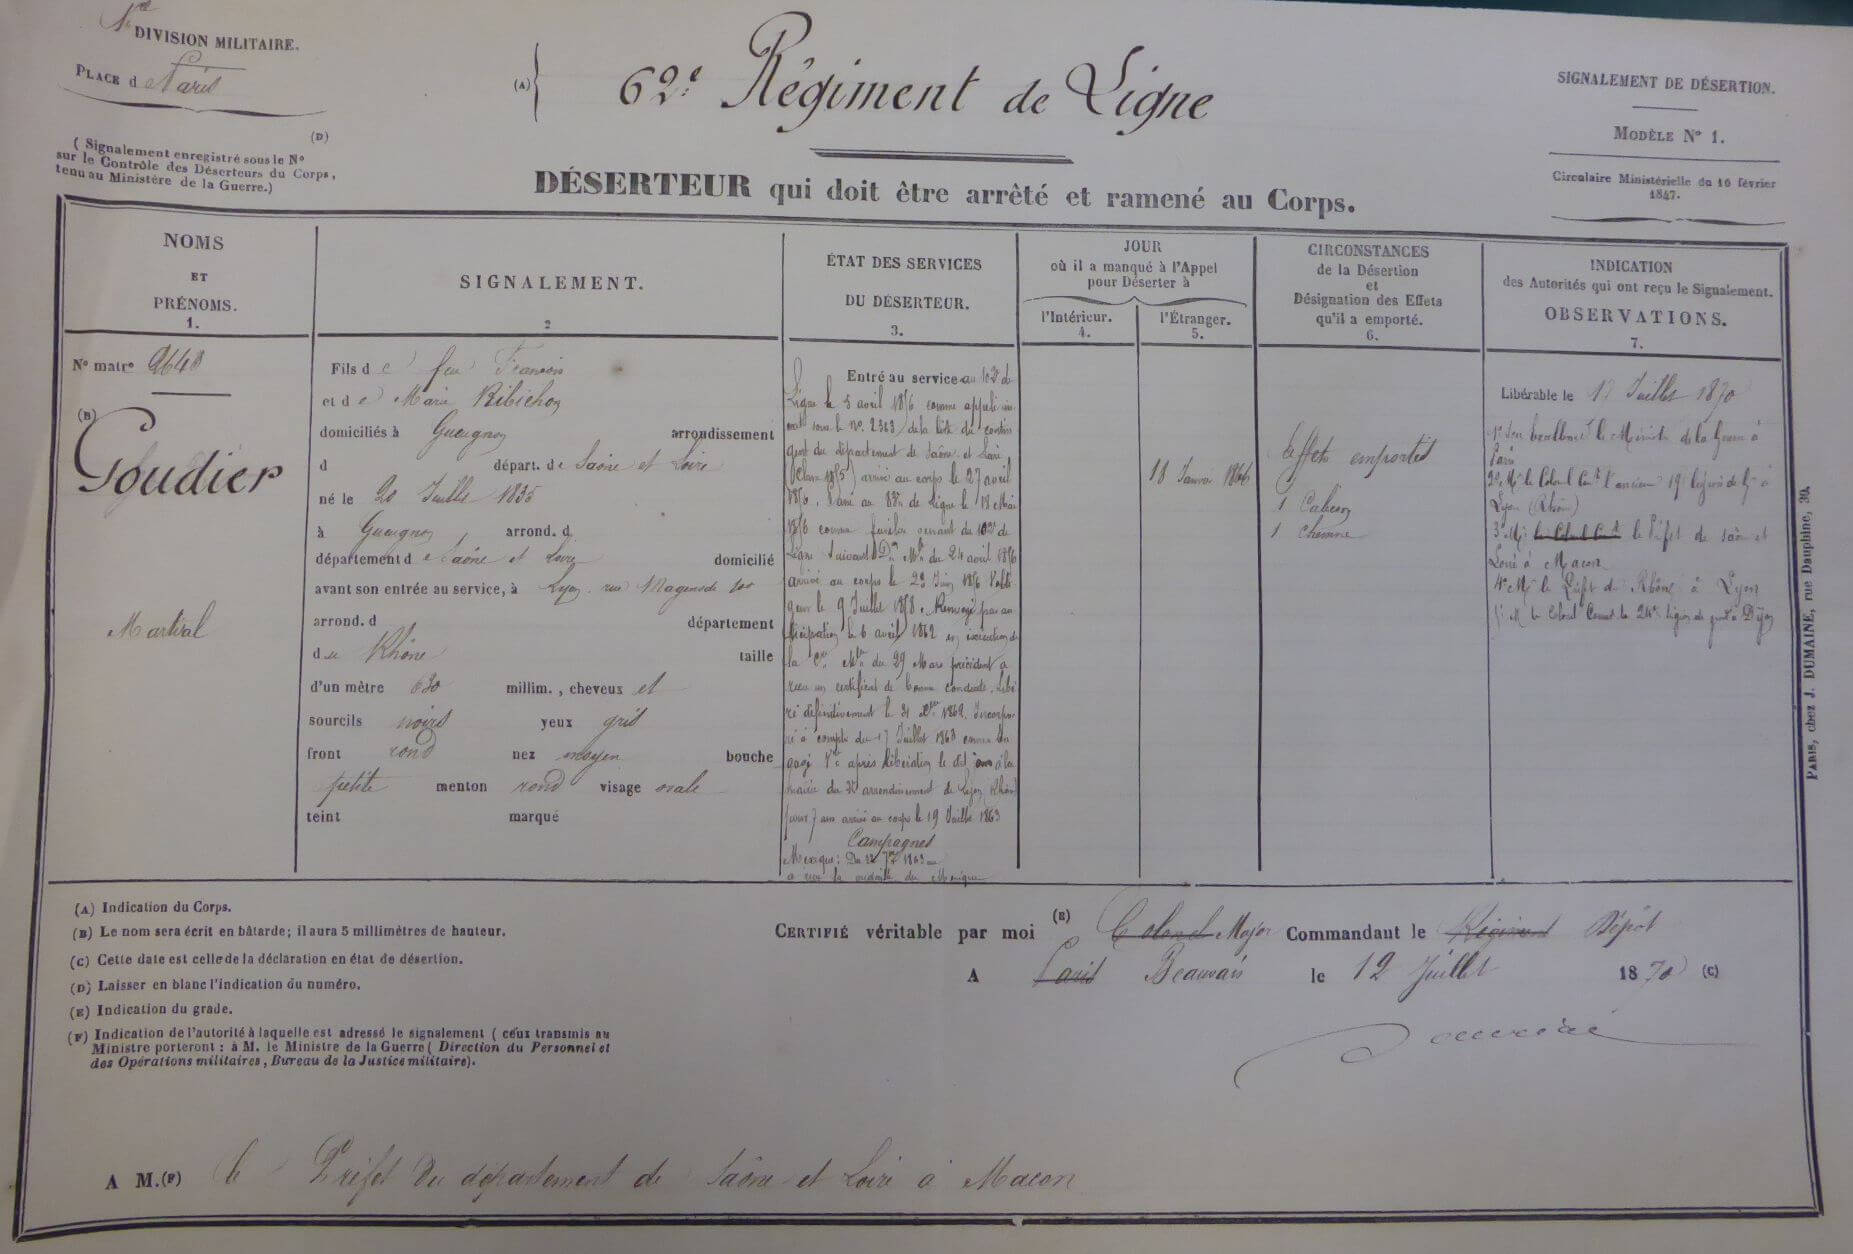 1re DIVISION MILITAIRE.
PLACE d Paris
(D)
( Signalement enregistré sous le No
sur le Contrôle des Déserteurs du Corps,
tenu au Ministère de la Guerre.)
(A) 62e Régiment de Ligne
DÉSERTEUR qui doit être arrêté et ramené au Corps.
SIGNALEMENT DE DÉSERTION.
MODÈLE No 1.
Circulaire Ministérielle du 16 février
1847.
NOMS
ET
PRÉNOMS.
1.
No matre 2648
(B)
Goudier
Martial
SIGNALEMENT.
2
Fils d e feu François
et d e Marie Ribichon
domiciliés à Gueugnon arrondissement
d départ. de Saône et Loire
né le 20 Juillet 1835
à Gueugnon, arrond. d
département d e Saône et Loire domicilié
avant son entrée au service, à Lyon rue
arrond. d département
du Rhône taille
d'un mètre 630 millim., cheveux et
sourcils noirs yeux gris
front rond nez moyen bouche
petite menton rond visage ovale
teint marqué
ÉTAT DES SERVICES
DU DÉSERTEUR.
3.
Entré au service au 102e de
Ligne le 5 avril 1856 comme appelé im-
sous le No. 2363 de la liste du contin
gent du département de Saône et Loire
(Classe 1855) arrivé au corps le 27 avril
1856. Passé au de Ligne le Mai
1856 comme fusilier venant du 102e de
Ligne Suivant Don Mlle du 24 avril 1856
arrivé au corps le 23 Juin 1856 Volti
geur le 9 Juillet 1858. Renvoyé par an
ticipation le 6 avril 1862 en exécution de
la Cre Mlle du 29 Mars précédent a
reçu un certificat de bonne conduite. Libé
ré définitivement le 31 Xbre 1862. Incorpo
ré à compter du 17 Juillet 1863 comme En
gagé Vre après libération le dit jour à la
mairie du arrondissement de Lyon (Rhône)
pour 7 ans arrivé au corps le 19 Juillet 1863
Campagnes
Mexique: Du 7bre 1863 au
a reçu la médaille du Mexique
JOUR
où il a manqué à l'Appel
pour Déserter à
l'Intérieur.
4.
l'Étranger.
5.
18 Janvier 1866
CIRCONSTANCES
de la Désertion
et
Désignation des Effets
qu'il a emporté.
6.
Effets emportés
1 Caleçon
1 Chemise
INDICATION
des Autorités qui ont reçu le Signalement.
OBSERVATIONS.
7.
Libérable le 17 Juillet 1870
1o Son Excellence le Ministre de la Guerre à
Paris
2o Mr le Colonel Cdt l'ancienne 19e légion de Gie à
Lyon (Rhône)
3o Mr le Colonel Cdt le Préfet de Saône et
Loire à Macon
4o Mr le Préfet du Rhône à Lyon
5o M le Colonel Comdt la 24e légion de gend à Dijon
PARIS, chez J. DUMAINE, rue Dauphine, 30.
(A) Indication du Corps.
(B) Le nom sera écrit en bâtarde; il aura 5 millimètres de hauteur.
(C) Cette date est celle de la déclaration en état de désertion.
(D) Laisser en blanc l'indication du numéro.
(E) Indication du grade.
(F) Indication de l'autorité à laquelle est adressé le signalement ( ceux transmis au
Ministre porteront : à M. le Ministre de la Guerre ( Direction du Personnel et
des Opérations militaires, Bureau de la Justice militaire).
CERTIFIÉ véritable par moi (E) Colonel Major Commandant le Régiment Dépôt
A Paris Beauvais le 12 Juillet 1870 (C)
A M.(F) le Préfet du département de Saône et Loire à Macon